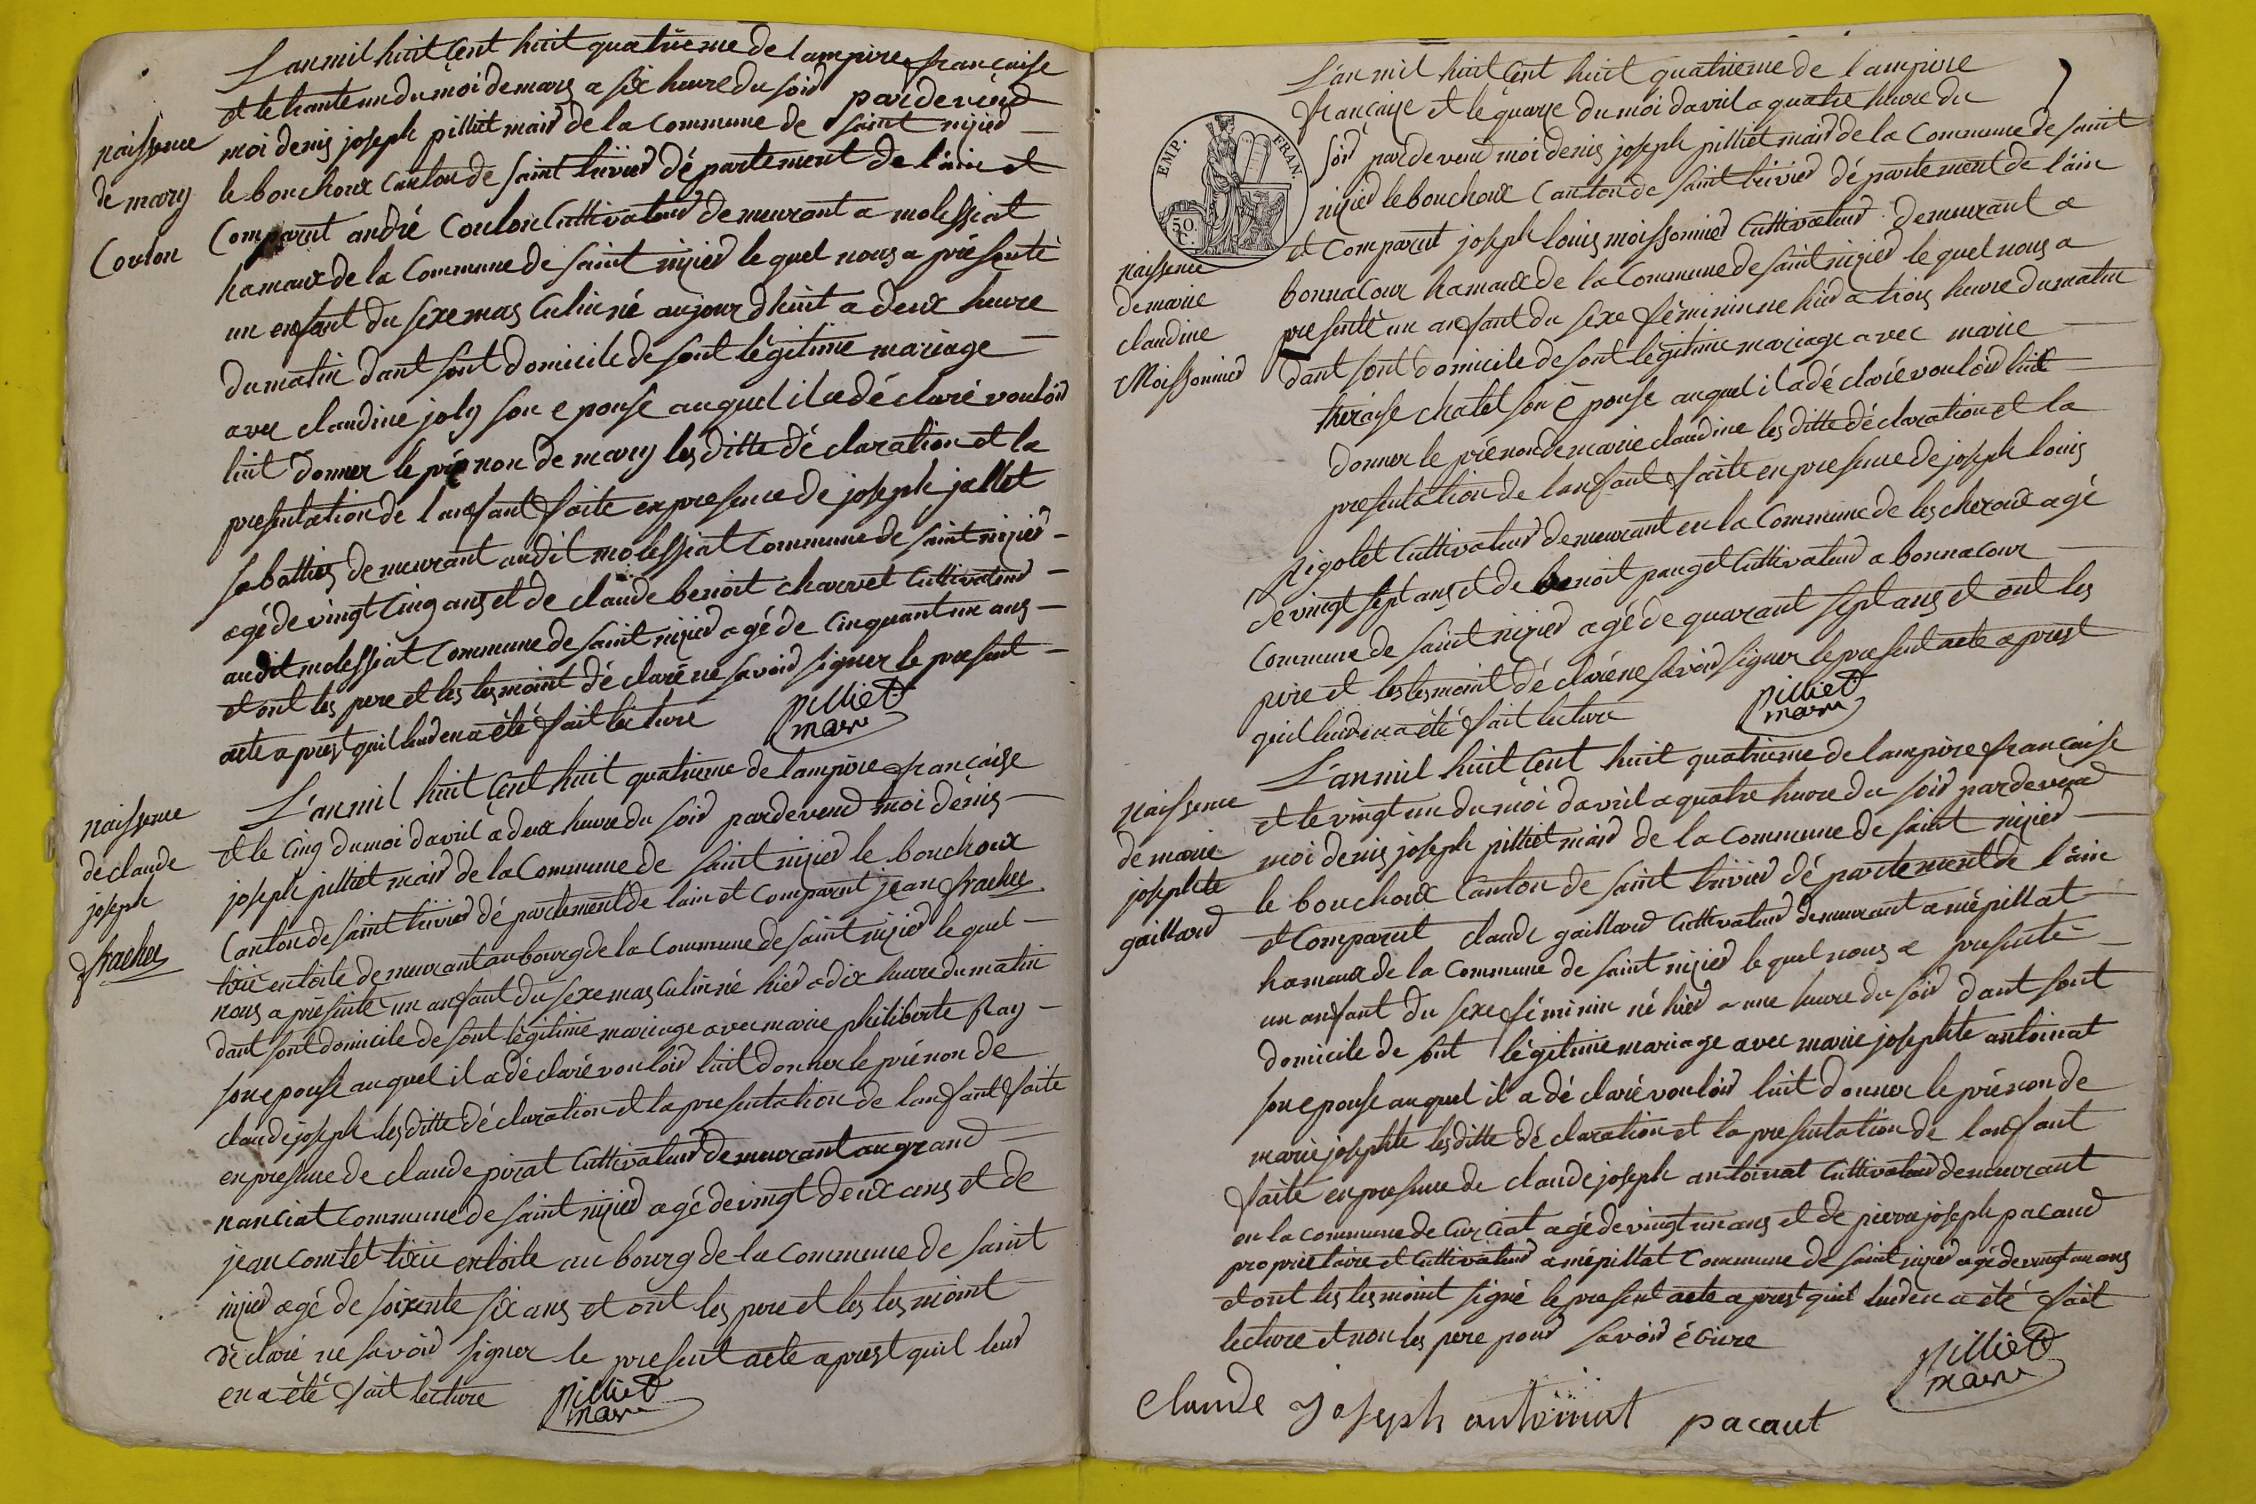 L'an mil huit Cent huit quatrieme de lampire française
et le trante un du moi de mars a six heure du soid pardevend
naissence
de mary
Coulon
moi denis joseph pilliet maid de la Commune de saint nizied
le bouchoux Canton de saint trivied département de l'ain et
Comparut andré Coulon Cultivateud demeurant a molessiat
hamaux de la Commune de saint nizied le quel nous a présenté
un enfant du sexe masculin né aujourdhuit a deux heure
du matin dant sont domicile de sont légitime mariage
avec claudine joly son epouse auquel il a déclaré vouloid
luit donner le prénon de mary les ditte déclaration et la
presentation de l anfant faite en presence de joseph jallet
sabottied demeurant audit molessiat Commune de saint nizied
agé de vingt Cinq ans et de claude benoit charvet Cultivateud
audit molessiat Commune de saint nizied agé de Cinquant un ans
et ont les pere et les tesmoint déclaré ne savoid signer le present
acte a prest quil leud en a été fait lecture
pilliet
mair
L'an mil huit Cent huit quatrieme de lampire française
naissence
de claude
joseph
fracher
et le Cinq du moi davril a deux heure du soid pardevend moi denis
joseph pilliet maid de la Commune de saint nizied le bouchoux
Canton de saint trivied département de lain et Comparut jean fracher
tixie en toile demeurant au bourg de la Commune de saint nizied le quel
nous a présenté un anfant du sexe masculin né hied a dix heure du matin
dant sont domicile de sont légitime mariage avec marie philiberte Ray
son epouse auquel il a déclaré vouloid luit donner le prénon de
claude joseph les ditte déclaration et la presentation de lanfant faite
en presence de claude pirat Cultivateud demeurant au grand
nanciat Commune de saint nizied agé de vingt deux ans et de
jean comtet tixie en toile au bourg de la Commune de saint
nizied agé de soixente six ans et ont les pere et les tesmoint
déclaré ne savoid signer le present acte a prest quil leud
en a été fait lecture
pilliet
mair
7
L'an mil huit Cent huit quatrieme de l ampire
française et le quarze du moi davril a quatre heure du
soid pardevend moi denis joseph pilliet maid de la Commune de saint
nizied le bouchoux Canton de saint trivied département de l'ain
EMP. FRAN.
50 C.
naissence
de marie
claudine
Moissonnied
et Comparut joseph louis moissonnied Cultivateud demeurant a
bonnacour hamaux de la Commune de saint nizied le quel nous a
presenté un anfant du sexe féminin ne hied a trois heure du matin
dant sont domicile de sont légitime mariage avec marie
theraise chatel son épouse auquel il a déclaré vouloid luit
donner le prénon de marie claudine les ditte déclaration et la
presentation de lanfant faite en presence de joseph louis
pigolet Cultivateud demeurant en la Commune de lescheroux agé
de vingt sept ans et de benoit pauget Cultivateud a bonnacour
Commune de saint nizied agé de quarant sept ans et ont les
pere et les tesmoint déclaré ne savoid signer le present acte a prest
quil leud en a été fait lecture
pilliet
mair
L'an mil huit Cent huit quatrieme de lampire française
naissence
de marie
josephte
gaillard
et le vingt un du moi davril a quatre heure du soid pardevend
moi denis joseph pilliet maid de la Commune de saint nizied
le bouchoux Canton de saint trivied département de l'ain
et Comparut claude gaillard Cultivateud demeurant a mépillat
hameaux de la Commune de saint nizied le quel nous a presenté
un anfant du sexe féminin né hied a une heure du soid dant sont
domicile de sont légitime mariage avec marie josephte antoinat
son epouse auquel il a déclaré vouloid luit donner le prénon de
marie josephte les ditte déclaration et la presentation de lanfant
faite en presence de claude joseph antoinat Cultivateud demeurant
en la Commune de Curciat agé de vingt un ans et de pierre joseph pacaud
proprietaire et Cultivateud a mépillat Commune de saint nizied agé de vingt un ans
et ont les tesmoint signé le present acte a prest quil leud en a été fait
lecture et non les pere poud savoid écrire
pilliet
mair
claude joseph antoinat pacaut